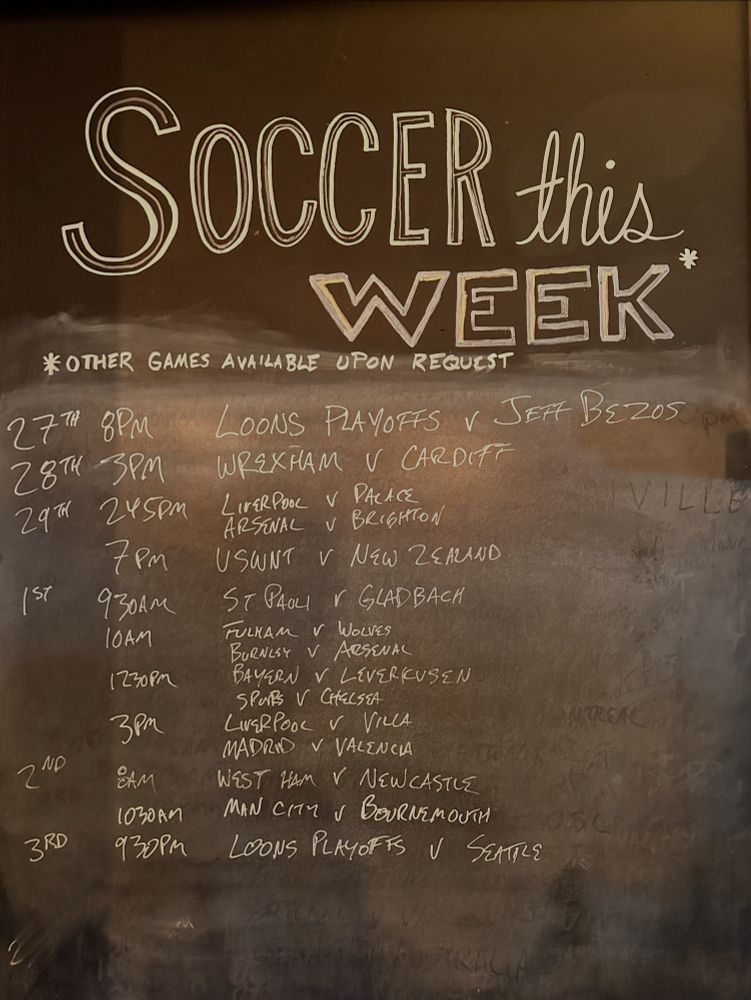 SOCCER this
WEEK*
*OTHER GAMES AVAILABLE UPON REQUEST
27TH 8PM LOONS PLAYOFFS V JEFF BEZOS
28TH 3PM WREXHAM V CARDIFF
29TH 245PM LIVERPOOL V PALACE
ARSENAL V BRIGHTON
7PM USWNT V NEW ZEALAND
1ST 930AM ST PAOLI V GLADBACH
10AM FULHAM V WOLVES
BURNLEY V ARSENAL
1230PM BAYERN V LEVERKUSEN
SPURS V CHELSEA
3PM LIVERPOOL V VILLA
MADRID V VALENCIA
2ND 8AM WEST HAM V NEWCASTLE
1030AM MAN CITY V BOURNEMOUTH
3RD 930PM LOONS PLAYOFFS V SEATTLE